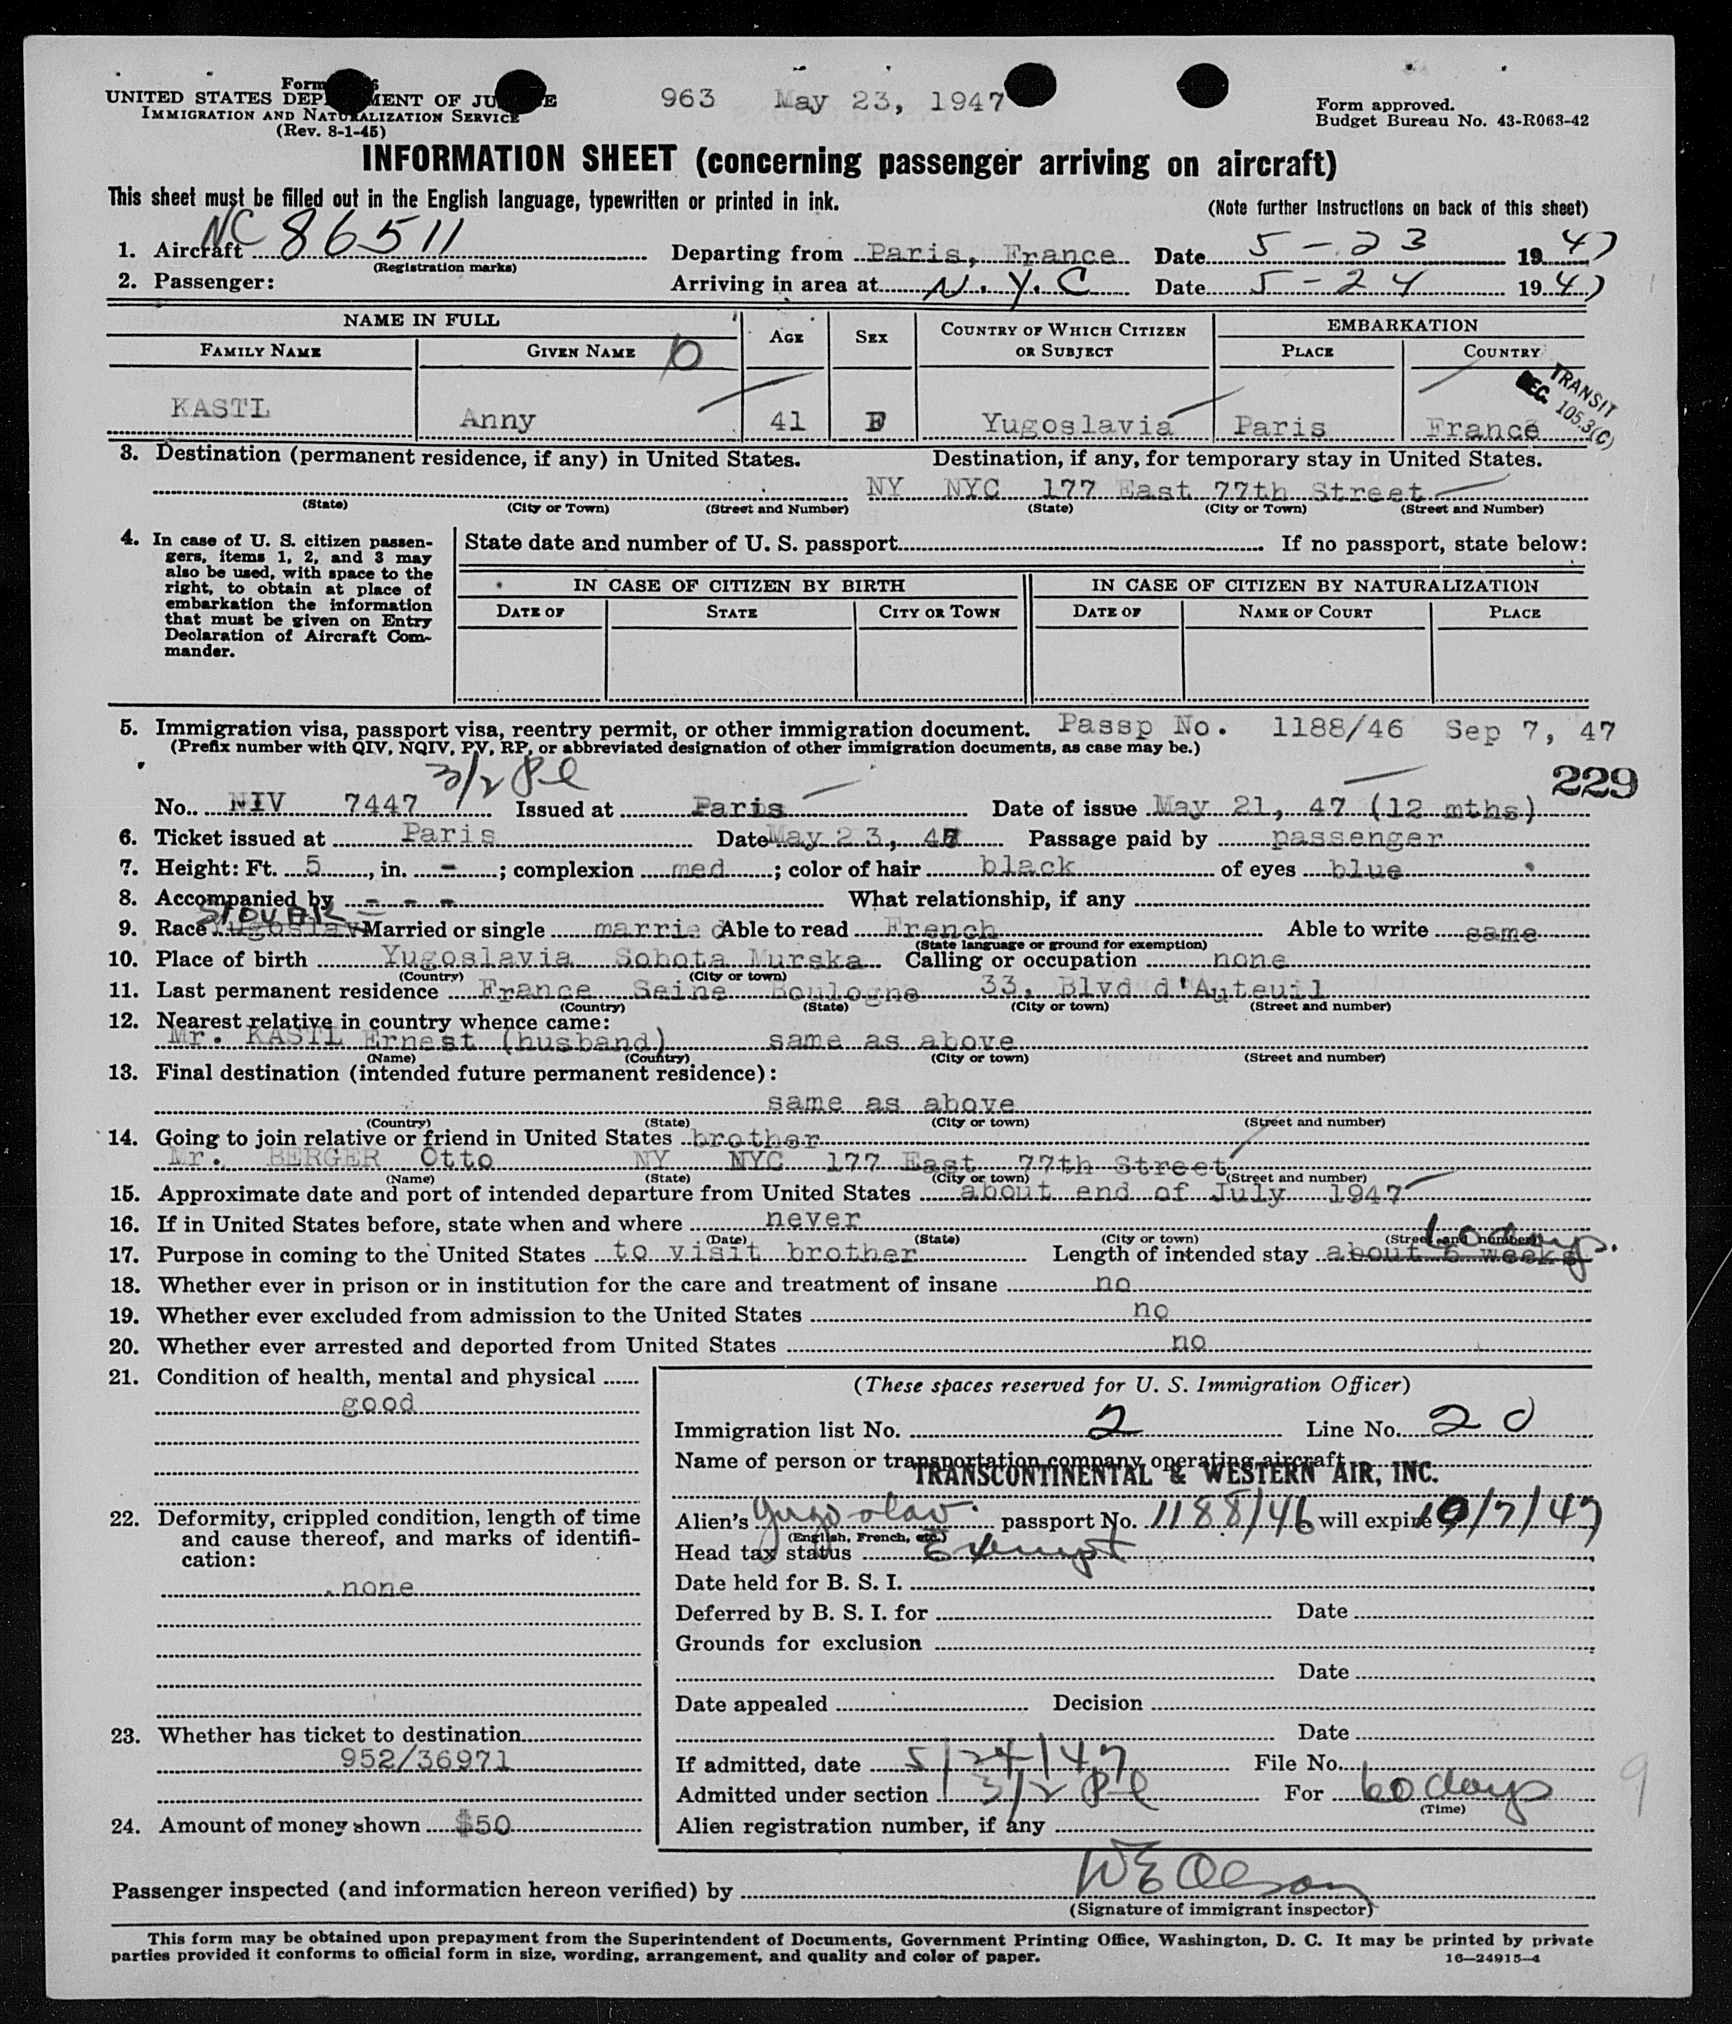 Form
UNITED STATES DEPARTMENT OF JUSTICE
IMMIGRATION AND NATURALIZATION SERVICE
(Rev. 8-1-45)
963 May 23, 1947
Form approved.
Budget Bureau No. 43-R063-42
INFORMATION SHEET (concerning passenger arriving on aircraft)
This sheet must be filled out in the English language, typewritten or printed in ink.
(Note further instructions on back of this sheet)
1. Aircraft NC 86511 Departing from Paris, France Date 5-23 1947
(Registration marks)
2. Passenger: Arriving in area at N.Y.C Date 5-24 1947
NAME IN FULL AGE SEX COUNTRY OF WHICH CITIZEN OR SUBJECT EMBARKATION
FAMILY NAME GIVEN NAME PLACE COUNTRY
TRANSIT
SEC. 105.3(C)
KASTL Anny 41 F Yugoslavia Paris France
3. Destination (permanent residence, if any) in United States. Destination, if any, for temporary stay in United States.
NY NYC 177 East 77th Street
(State) (City or Town) (Street and Number) (State) (City or Town) (Street and Number)
4. In case of U. S. citizen passen-
gers, items 1, 2, and 3 may
also be used, with space to the
right, to obtain at place of
embarkation the information
that must be given on Entry
Declaration of Aircraft Com-
mander.
State date and number of U. S. passport If no passport, state below:
IN CASE OF CITIZEN BY BIRTH IN CASE OF CITIZEN BY NATURALIZATION
DATE OF STATE CITY OR TOWN DATE OF NAME OF COURT PLACE
5. Immigration visa, passport visa, reentry permit, or other immigration document. Passp No. 1188/46 Sep 7, 47
(Prefix number with QIV, NQIV, PV, RP, or abbreviated designation of other immigration documents, as case may be.)
3/2 Pl
229
No. NIV 7447 Issued at Paris Date of issue May 21, 47 (12 mths)
6. Ticket issued at Paris Date May 23, 47 Passage paid by passenger
7. Height: Ft. 5, in. -; complexion med; color of hair black of eyes blue
8. Accompanied by - - - What relationship, if any
9. Race Yugoslav Married or single married Able to read French Able to write same
(State language or ground for exemption)
10. Place of birth Yugoslavia Sobota Murska Calling or occupation none
(Country) (City or town)
11. Last permanent residence France Seine Boulogne 33, Blvd d'Auteuil
(Country) (State) (City or town) (Street and number)
12. Nearest relative in country whence came:
Mr. KASTL Ernest (husband) same as above
(Name) (Country) (City or town) (Street and number)
13. Final destination (intended future permanent residence):
same as above
(Country) (State) (City or town) (Street and number)
14. Going to join relative or friend in United States brother
Mr. BERGER Otto NY NYC 177 East 77th Street
(Name) (State) (City or town) (Street and number)
15. Approximate date and port of intended departure from United States about end of July 1947
16. If in United States before, state when and where never
(Date) (State) (City or town) (Street and number)
17. Purpose in coming to the United States to visit brother Length of intended stay about 6 weeks 60 days.
18. Whether ever in prison or in institution for the care and treatment of insane no
19. Whether ever excluded from admission to the United States no
20. Whether ever arrested and deported from United States no
21. Condition of health, mental and physical
good
22. Deformity, crippled condition, length of time
and cause thereof, and marks of identifi-
cation:
none
23. Whether has ticket to destination
952/36971
24. Amount of money shown $50
(These spaces reserved for U. S. Immigration Officer)
Immigration list No. 2 Line No. 20
Name of person or transportation company operating aircraft
TRANSCONTINENTAL & WESTERN AIR, INC.
Alien's Yugoslav passport No. 1188/46 will expire 9/7/47
(English, French, etc.)
Head tax status Exempt
Date held for B. S. I.
Deferred by B. S. I. for Date
Grounds for exclusion
Date
Date appealed Decision
Date
If admitted, date 5/24/47 File No.
Admitted under section 3/2 Pl For 60 days
(Time)
Alien registration number, if any
9
Passenger inspected (and information hereon verified) by W E Olson
(Signature of immigrant inspector)
This form may be obtained upon prepayment from the Superintendent of Documents, Government Printing Office, Washington, D. C. It may be printed by private
parties provided it conforms to official form in size, wording, arrangement, and quality and color of paper.
16—24915-4